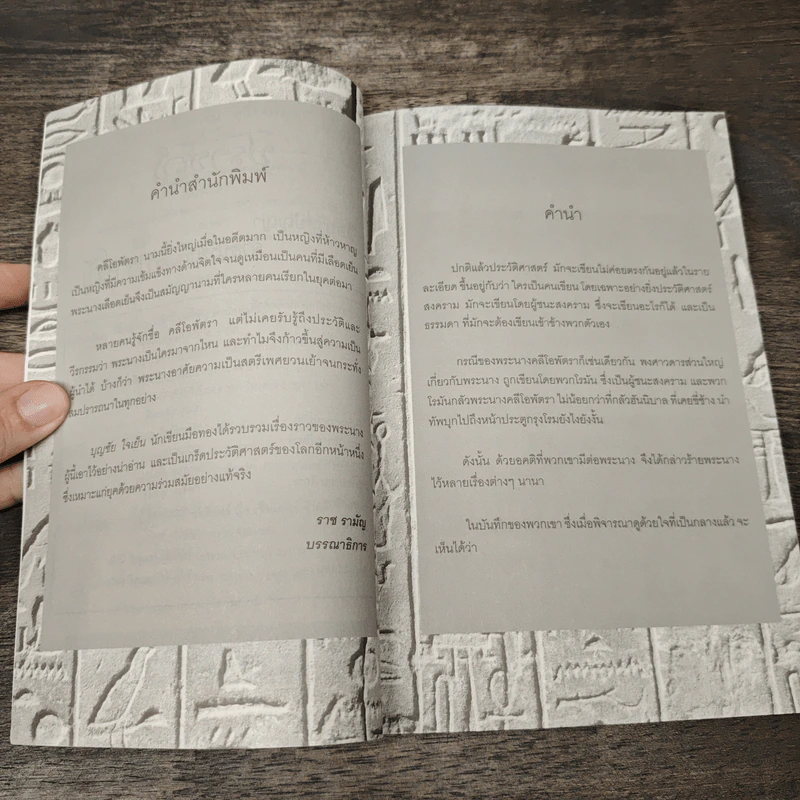 คำนำสำนักพิมพ์
คลีโอพัตรา นามนี้ยิ่งใหญ่เมื่อในอดีตมาก เป็นหญิงที่ห้าวหาญ
เป็นหญิงที่มีความเข้มแข็งทางด้านจิตใจ จนดูเหมือนเป็นคนที่มีเลือดเย็น
พระนางเลือดเย็นจึงเป็นสมัญญานามที่ใครหลายคนเรียกในยุคต่อมา
หลายคนรู้จักชื่อ คลีโอพัตรา แต่ไม่เคยรับรู้ถึงประวัติและ
วีรกรรมว่า พระนางเป็นใครมาจากไหน และทำไมจึงก้าวขึ้นสู่ความเป็น
ผู้นำได้ บ้างก็ว่า พระนางอาศัยความเป็นสตรีเพศยวนเย้าจนกระทั่ง
สมปรารถนาในทุกอย่าง
บุญชัย ใจเย็น นักเขียนมือทองได้รวบรวมเรื่องราวของพระนาง
ผู้นี้เอาไว้อย่างน่าอ่าน และเป็นเกร็ดประวัติศาสตร์ของโลกอีกหน้าหนึ่ง
ซึ่งเหมาะแก่ยุคด้วยความร่วมสมัยอย่างแท้จริง
ราช รามัญ
บรรณาธิการ
คำนำ
ปกติแล้วประวัติศาสตร์ มักจะเขียนไม่ค่อยตรงกันอยู่แล้วในราย
ละเอียด ขึ้นอยู่กับว่า ใครเป็นคนเขียน โดยเฉพาะอย่างยิ่งประวัติศาสตร์
สงคราม มักจะเขียนโดยผู้ชนะสงคราม ซึ่งจะเขียนอะไรก็ได้ และเป็น
ธรรมดา ที่มักจะต้องเขียนเข้าข้างพวกตัวเอง
กรณีของพระนางคลีโอพัตราก็เช่นเดียวกัน พงศาวดารส่วนใหญ่
เกี่ยวกับพระนาง ถูกเขียนโดยพวกโรมัน ซึ่งเป็นผู้ชนะสงคราม และพวก
โรมันกลัวพระนางคลีโอพัตรา ไม่น้อยกว่าที่กลัวฮันนิบาล ที่เคยขี่ช้าง นำ
ทัพบุกไปถึงหน้าประตูกรุงโรมยังไงยังงั้น
ดังนั้น ด้วยอคติที่พวกเขามีต่อพระนาง จึงได้กล่าวร้ายพระนาง
ไว้หลายเรื่องต่างๆ นานา
ในบันทึกของพวกเขา ซึ่งเมื่อพิจารณาดูด้วยใจที่เป็นกลางแล้ว จะ
เห็นได้ว่า